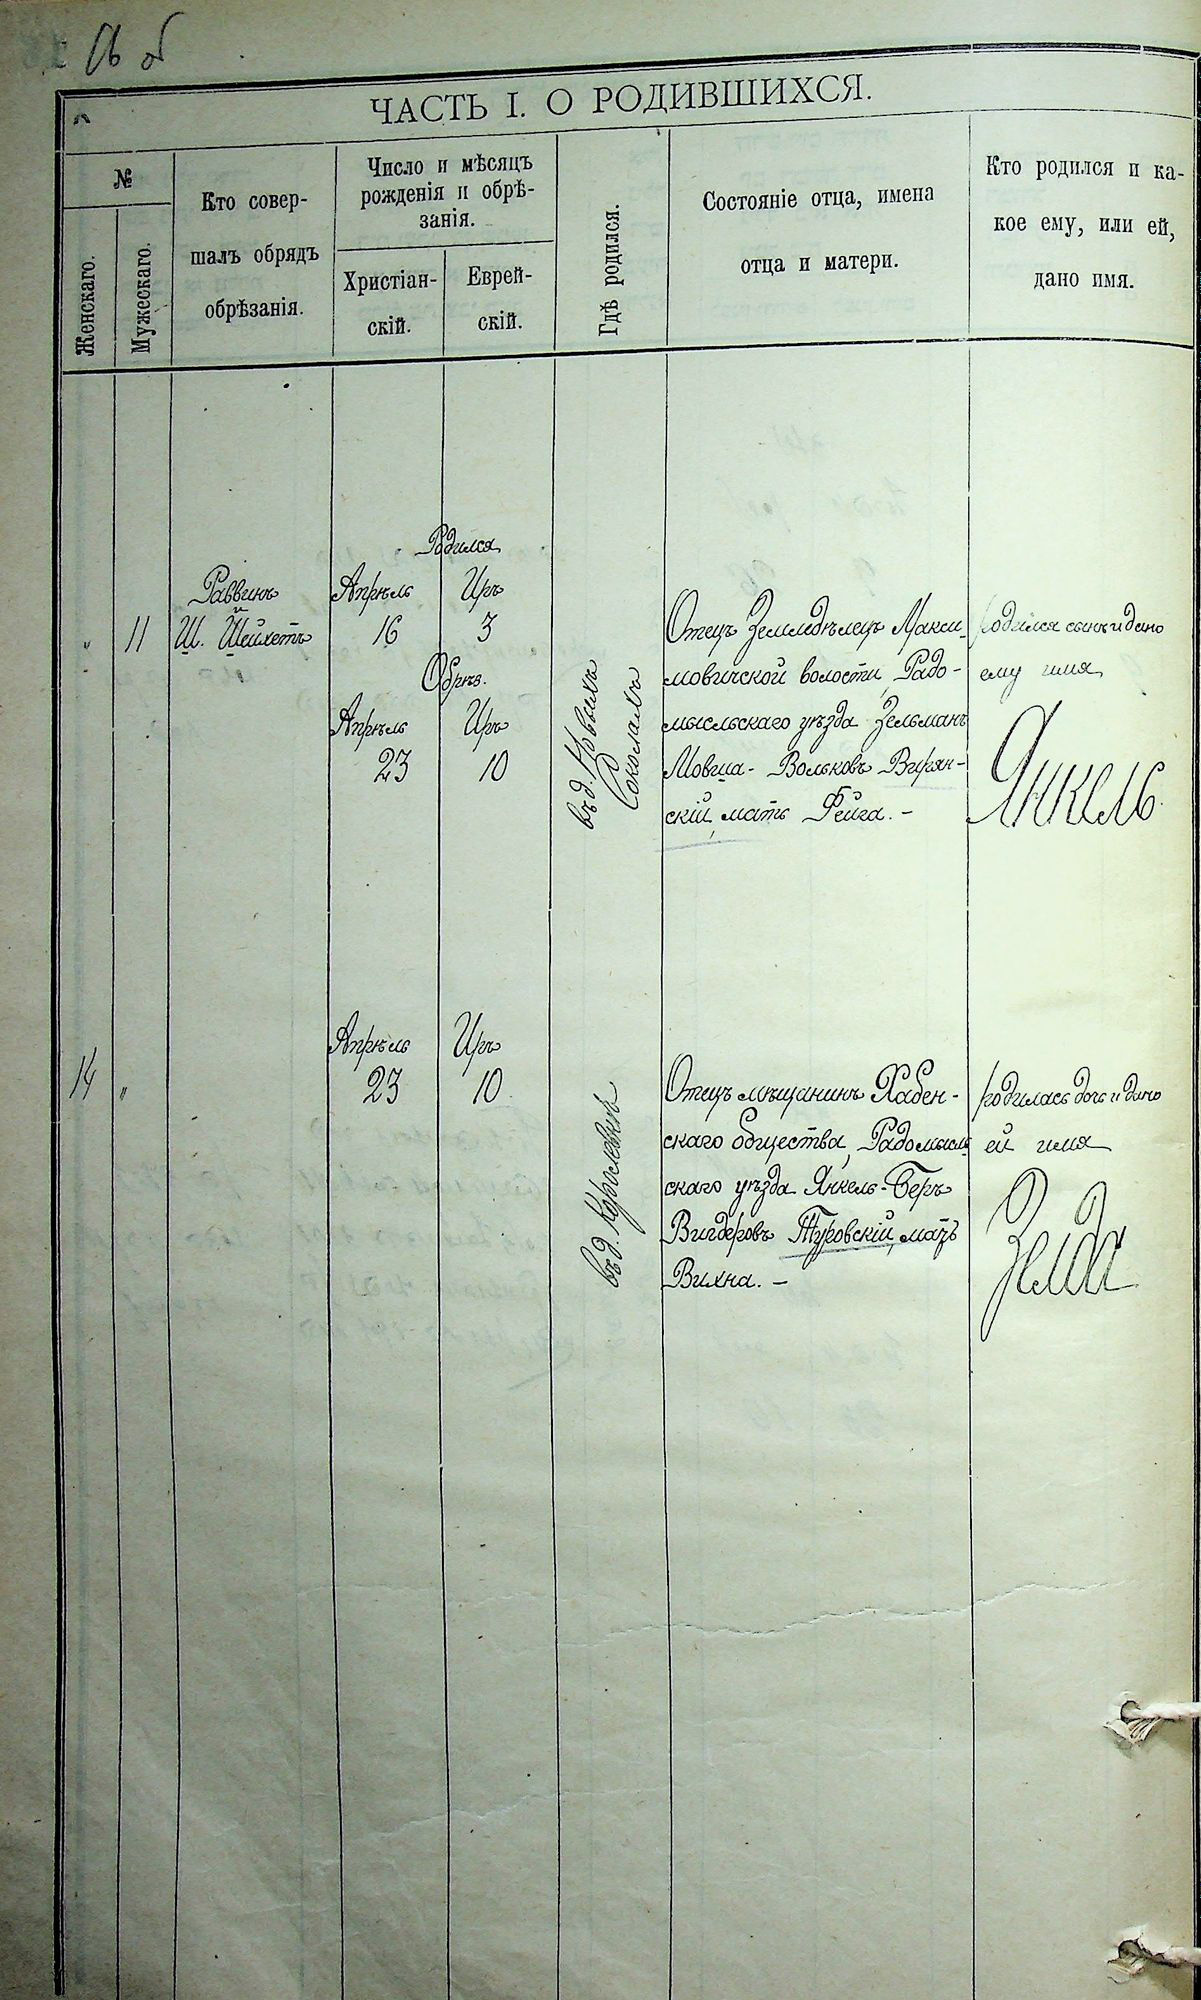 ЧАСТЬ I. О РОДИВШИХСЯ.
№
Женскаго.
Мужескаго.
Кто совер-
шалъ обрядъ
обрѣзанія.
Число и мѣсяцъ
рожденія и обрѣ-
занія.
Христіан-
скій.
Еврей-
скій.
Гдѣ родился.
Состояніе отца, имена
отца и матери.
Кто родился и ка-
кое ему, или ей,
дано имя.
"
11
Раввинъ
Ш. Шейхетъ
Родился
Апрѣль
Иръ
16
3
Обрѣз.
Апрѣль
Иръ
23
10
въ д. Новыхъ
Соколахъ
Отецъ Земледѣлецъ Макси-
мовичской волости, Радо-
мысльскаго уѣзда Зельманъ
Мовша-Вольковъ Вирян-
скій, мать Фейга. –
родился сынъ и дано
ему имя
Янкель.
14
"
Апрѣль
Иръ
23
10
въ д. Королевкѣ
Отецъ мѣщанинъ Хабен-
скаго общества, Радомысль
скаго уѣзда Янкель-Беръ
Вигдеровъ Туровскій, мать
Вихна. –
родилась дочь и дано
ей имя
Зелда